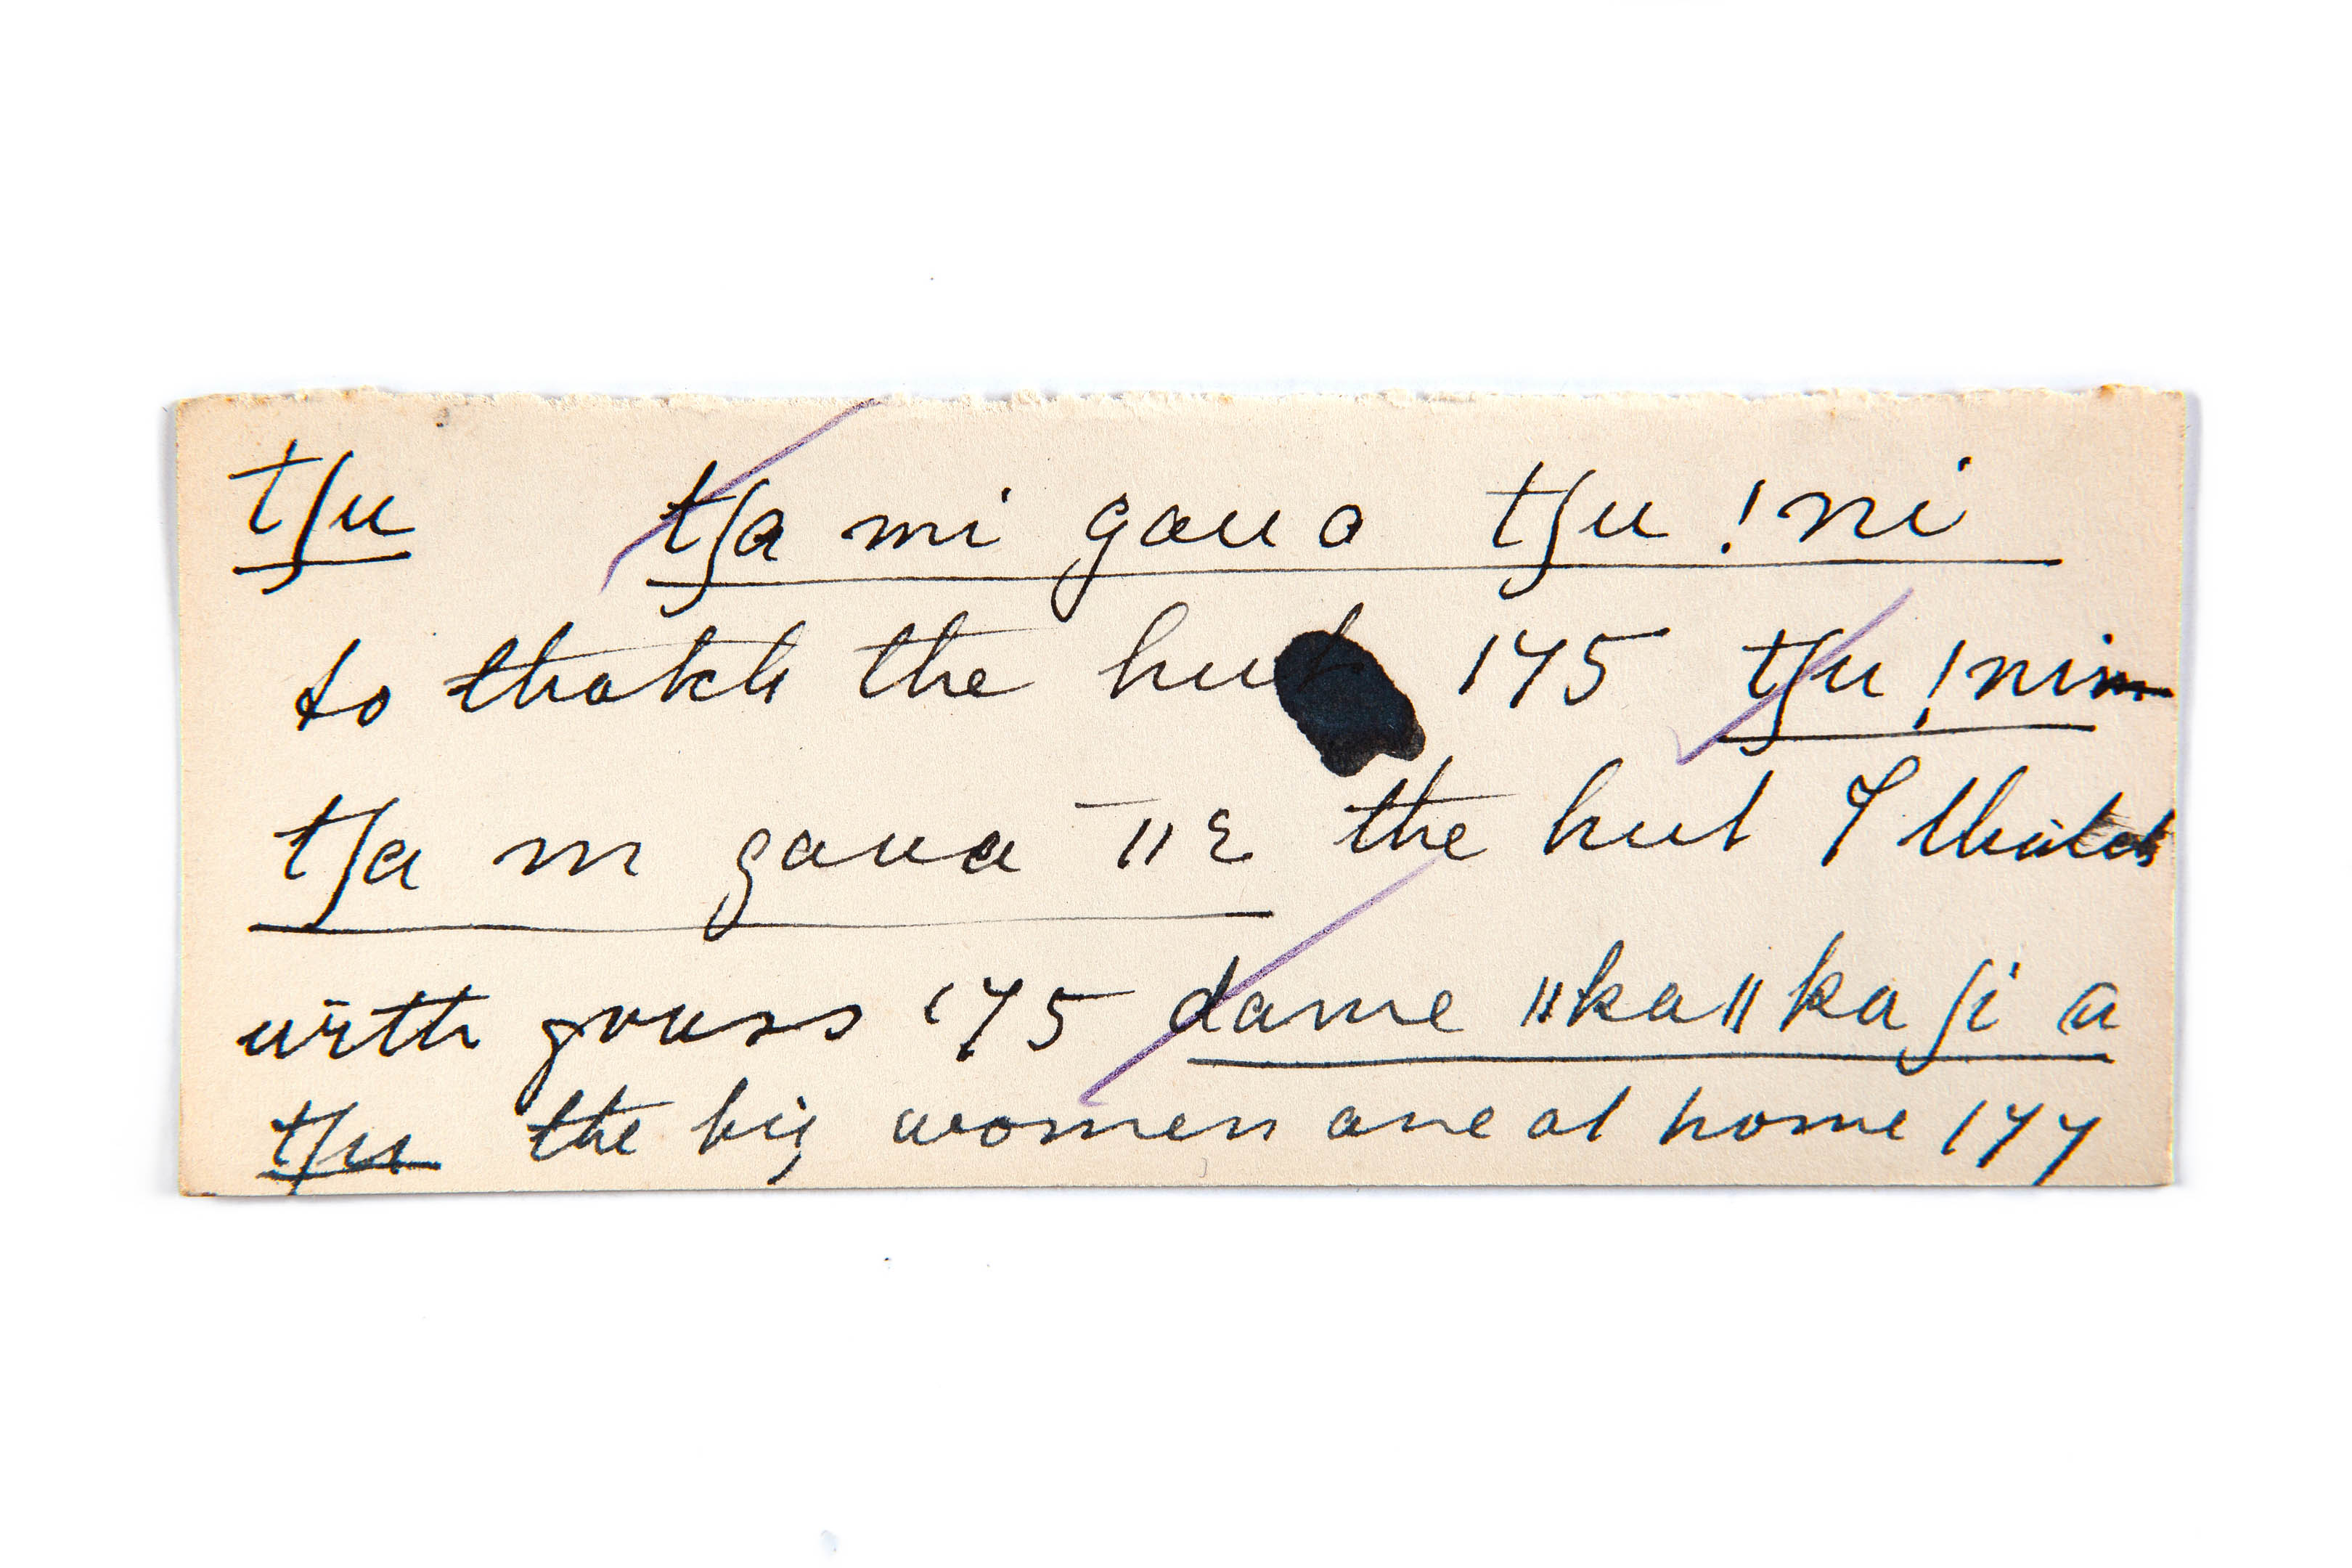 tʃu tʃa mi gaua tʃu !ni
to thatch the hut 175 tʃu !nim
tʃa m gaua ̄ ǁɛ the hut I thatch
with grass 175 dame ǁkaǁka ʃi a
tʃu the big women are at home 177